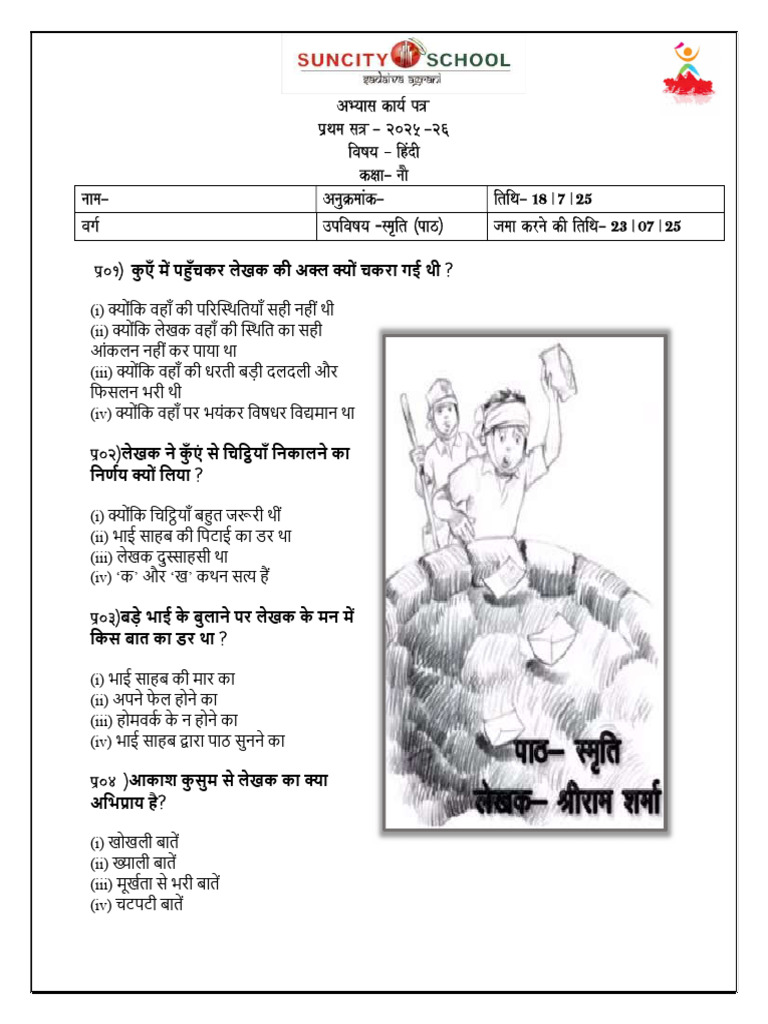 SUNCITY SCHOOL
sadaiva agrani
अभ्यास कार्य पत्र
प्रथम सत्र – २०२५ –२६
विषय – हिंदी
कक्षा– नौ
नाम– अनुक्रमांक– तिथि– 18|7|25
वर्ग उपविषय -स्मृति (पाठ) जमा करने की तिथि– 23|07|25
प्र०१) कुएँ में पहुँचकर लेखक की अक्ल क्यों चकरा गई थी ?
(i) क्योंकि वहाँ की परिस्थितियाँ सही नहीं थी
(ii) क्योंकि लेखक वहाँ की स्थिति का सही
आंकलन नहीं कर पाया था
(iii) क्योंकि वहाँ की धरती बड़ी दलदली और
फिसलन भरी थी
(iv) क्योंकि वहाँ पर भयंकर विषधर विद्यमान था
प्र०२)लेखक ने कुँएं से चिट्ठियाँ निकालने का
निर्णय क्यों लिया ?
(i) क्योंकि चिट्ठियाँ बहुत जरूरी थीं
(ii) भाई साहब की पिटाई का डर था
(iii) लेखक दुस्साहसी था
(iv) ‘क’ और ‘ख’ कथन सत्य हैं
प्र०३)बड़े भाई के बुलाने पर लेखक के मन में
किस बात का डर था ?
(i) भाई साहब की मार का
(ii) अपने फेल होने का
(iii) होमवर्क के न होने का
(iv) भाई साहब द्वारा पाठ सुनने का
प्र०४ )आकाश कुसुम से लेखक का क्या
अभिप्राय है?
(i) खोखली बातें
(ii) ख्याली बातें
(iii) मूर्खता से भरी बातें
(iv) चटपटी बातें
पाठ– स्मृति
लेखक– श्रीराम शर्मा